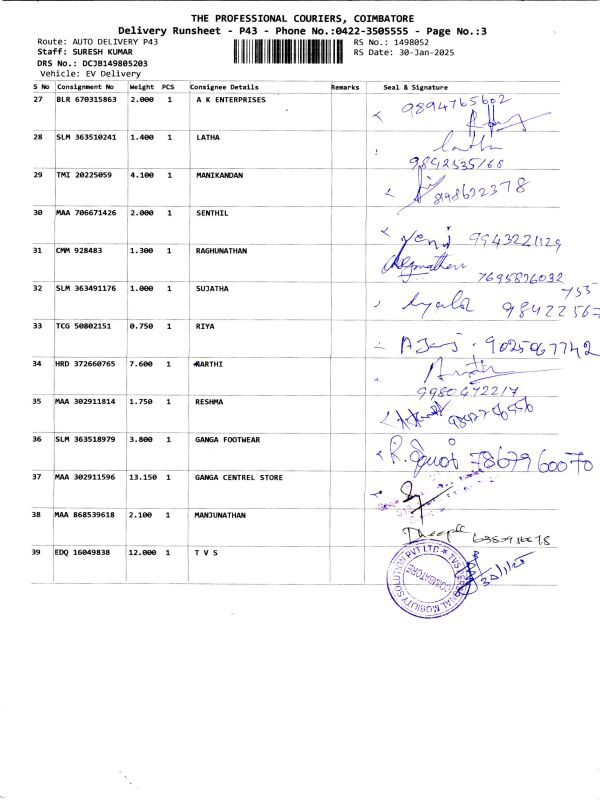 THE PROFESSIONAL COURIERS, COIMBATORE
Delivery Runsheet - P43 - Phone No.:0422-3505555 - Page No.:3
Route: AUTO DELIVERY P43 RS No.: 1498052
Staff: SURESH KUMAR RS Date: 30-Jan-2025
DRS No.: DCJB149805203
Vehicle: EV Delivery
S No Consignment No Weight PCS Consignee Details Remarks Seal & Signature
27 BLR 670315863 2.000 1 A K ENTERPRISES 9894765602
28 SLM 363510241 1.400 1 LATHA Latha
9842535168
29 TMI 20225059 4.100 1 MANIKANDAN
30 MAA 706671426 2.000 1 SENTHIL 9943221129
31 CMM 928483 1.300 1 RAGHUNATHAN
7695826032
32 SLM 363491176 1.000 1 SUJATHA
33 TCG 50802151 0.750 1 RIYA 9025067742
34 HRD 372660765 7.600 1 AARTHI
9980472217
35 MAA 302911814 1.750 1 RESHMA
36 SLM 363518979 3.800 1 GANGA FOOTWEAR 7867960070
37 MAA 302911596 13.150 1 GANGA CENTREL STORE
38 MAA 868539618 2.100 1 MANJUNATHAN
39 EDQ 16049838 12.000 1 T V S
COIMBATORE
30/1/25